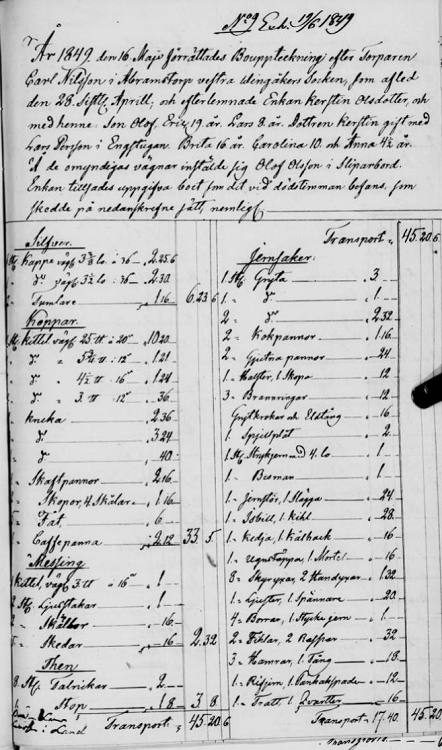 No 9 Exh. 19/6 1849
År 1849. den 16 Maji förrättades Bouppteckning efter Torparen
Carl Nilsson i Abramstorp vestra Wingåkers Socken, som afled
den 28. Sistl. Aprill, och efterlemnade Enkan Kerstin Olsdotter, och
med henne: Son Olof, Eric 19 år. Lars 8 år. Dottren Kerstin gift med
Lars Persson i Engstugan. Brita 16 år. Carolina 10. och Anna 4½ år.
å de omyndigas vägnar instälde sig Olof Olsson i Sliparbord.
Enkan tillsades uppgifva boet som det vid dödstimman befans, som
skedde på nedanskrefne sätt, nemligt
Silfver.
Kappe väg. 3 ⅝ lo : 36 2.25.6
Dº väg. 3½ lo : 36 2.30
Tumlare 1.16 6.23.6
Koppar.
Kittel väg. 25 tt : 20 10.20
Dº 5¾ tt : 12 1.21
Dº 4½ tt : 16 1.24
Dº 3 tt : 12 36
Kneka 2.36
Dº 3.24
Dº 40
Skaftpannor 2.16
Skopor, 4 Skålar 1.16
Fat 6
Caffepanna 2.12 33.5
Messing
1 Kittel, väg. 3 tt à 16 1
2 St. Ljusstakar 1
Skållor 16
Skedar 16 2.32
Then
8 St. Talrickar 2
Stop 1.8 3.8
Transport 45.20.6
Transport 45.20.6
Jernsaker.
1 St. Gryta 3
1 Dº 1
2 Dº 2.32
2 Kokpannor 1.16
2 Gjutna pannor 24
1 Halster, 1 Skopa 12
3 Brannringar 12
Grytkrokar och Eldtång 16
1 Spjellplåt 2
1 St. Strykjern med 4. lo 1
1 Besman 1
1 Jernstör, 1 Slägga 24
1 Isbill, 1 Kihl 28
1 Kedja, 1 Kålhack 16
1 Ugnstoppa, 1 Mortel 16
8 Skyryxar, 2 Handyxar 1.32
1 Ljuster, 1 Spännare 20
4 Borrar, 1 Stycke jern 1
2 Fihlar, 2 Raspar 32
3 Hamrar, 1 Tång 18
1 Rifjern, 1 Pankakspade 12
1 Tratt, 1 Qvarter 16
Transport 17.40 45.20